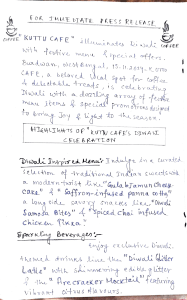 FOR IMMEDIATE PRESS RELEASE
COFFEE
COFFEE
"KUTTU CAFE" illuminates Diwali
with festive menu & special offers.
CAFE, a beloved local spot for coffee
& delectable treats, is celebrating
Diwali with a dazzling array of festive
menu items & special promotions designed
to bring joy & light to the season.
HIGHLIGHTS OF "KUTTU CAFE'S DIWALI
CELEBRATION
Diwali Inspired Menu:- Indulge in a curated
selection of traditional Indian sweets with
a modern twist like "Gulab Jamun Cheese
cake" & "Saffron-infused panna cotta"
alongside savory snacks like "Diwali
Samosa Bites" & "Spiced Chai infused
Chicken Tikka."
Sparkling Beverages:-
Enjoy exclusive Diwali
themed drinks like the "Diwali Glitter
Latte" with shimmering edible glitter
& the "Firecracker Mocktail" featuring
vibrant citrus flavours.